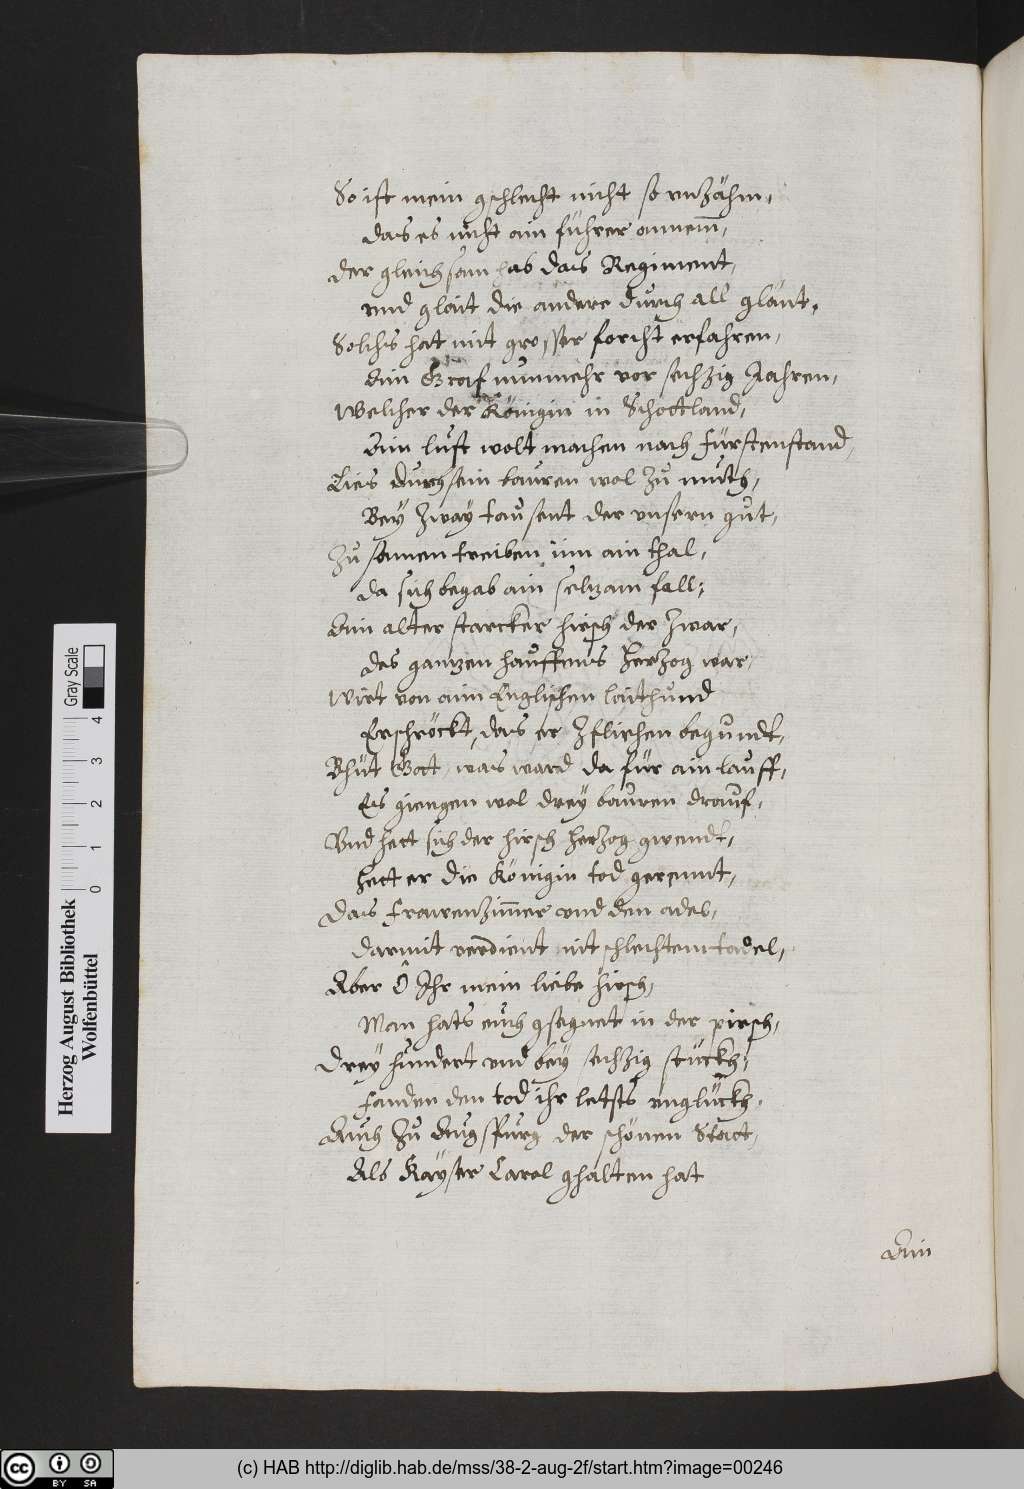 So ist mein gschlecht nicht so vnzähm,
das es nicht ain führer annem̄,
der gleichsam hab das Regiment,
vnd glait die andere durch all gländ,
Solchs hat mit grosser forcht erfahren,
Ain Graf nunmehr vor sechzig Jahren,
Welcher der Königin in Schottland,
Ain lust wolt machen nach fürstenstand,
Lies durch sein bauren wol zu muth,
Bey zway tausent der vnsern gut,
Zusamen treiben inn ain thal,
da sich begab ain seltzam fall,
Ain alter starcker hirsch der zwar,
des gantzen hauffens Hertzog war,
Wirt von aim Englischen laithund
Erschröckt, das er zfliehen begundt,
Bhüt Gott, was ward da für ain lauff,
Es giengen wol drey bauren drauf,
Vnd hett sich der hirsch hertzog gwendt,
hett er die Königin tod gerennt,
das frawenzim̄er vnd den adel,
darmit verdient nit schlechten tadel,
Aber Ô Ihr mein liebe hirsch,
Man hats euch gsegnet in der pirsch,
drey hundert vnd bey sechzig stuckh,
fanden den tod ihr letsts vnglückh,
Auch zu Augspurg der schönen Statt,
Als Kayser Carol ghalten hat
Ain
Herzog August Bibliothek
Wolfenbüttel
0 1 2 3 4
Gray Scale
cc BY SA
(c) HAB http://diglib.hab.de/mss/38-2-aug-2f/start.htm?image=00246